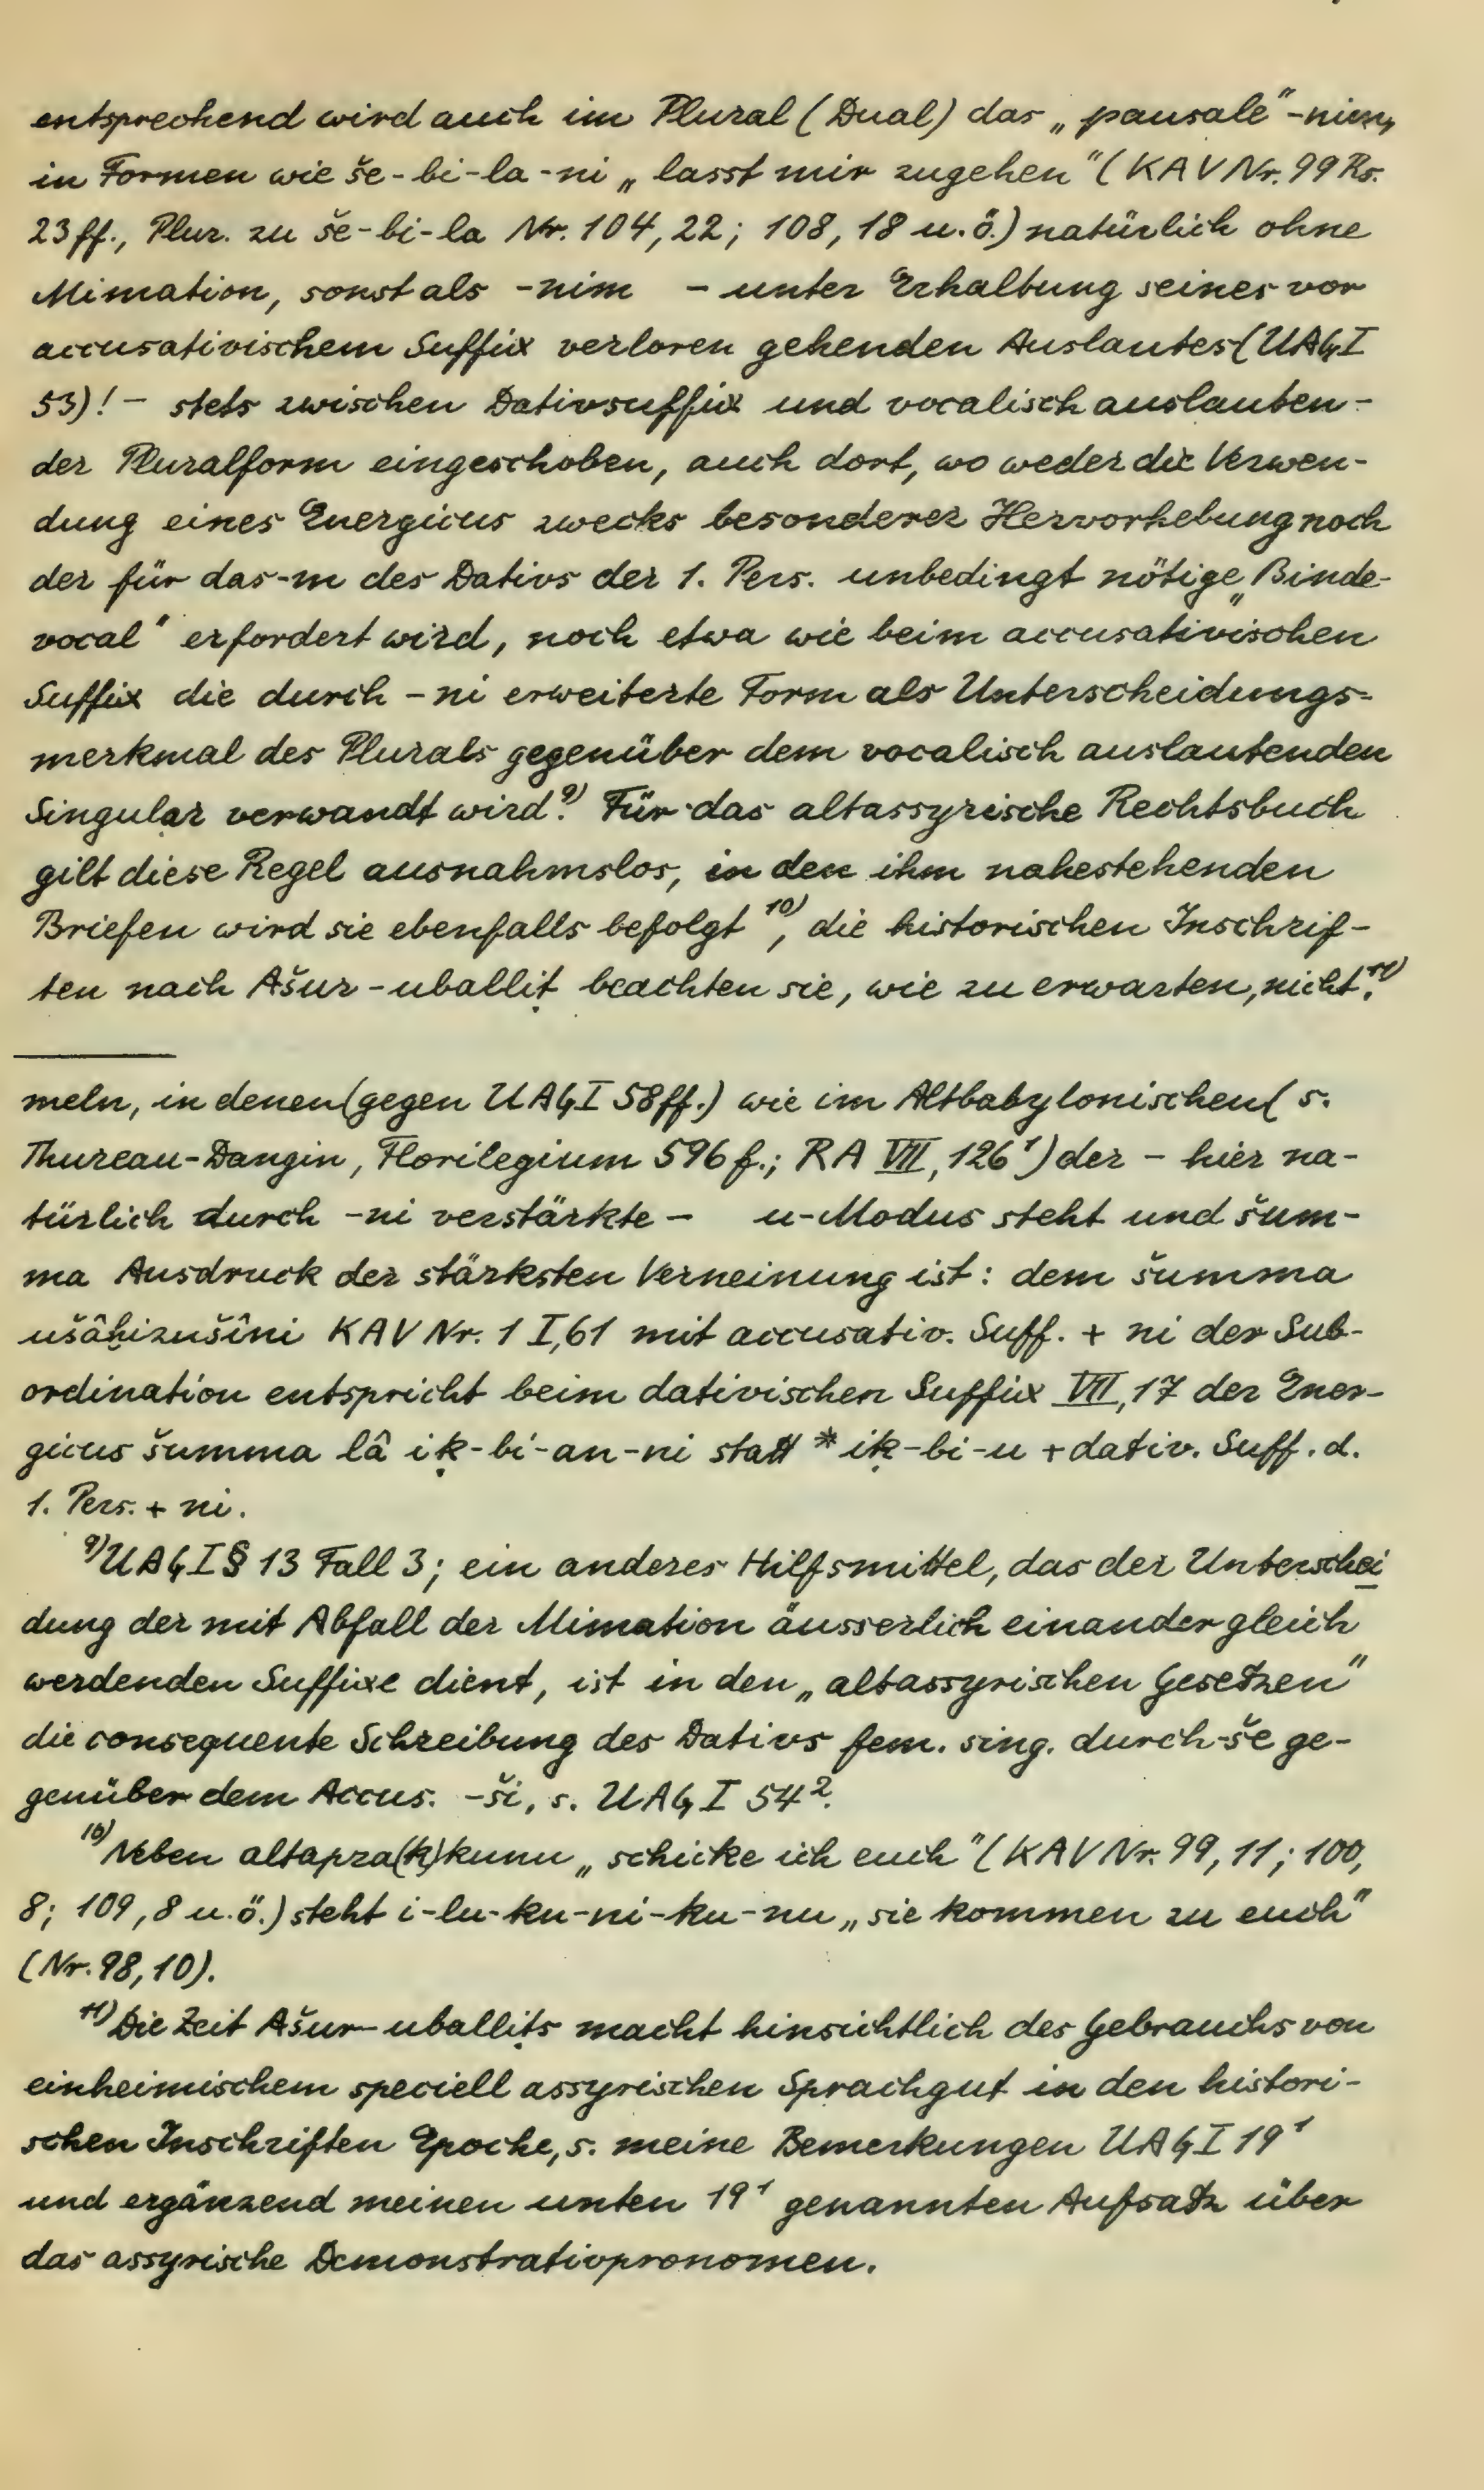 entsprechend wird auch im Plural (Dual) das „pausale“ -nim,
in Formen wie še-bi-la-ni „lasst mir zugehen“ (KAV Nr. 99 Rs.
23ff., Plur. zu še-bi-la Nr. 104, 22; 108, 18 u.ö.) natürlich ohne
Mimation, sonst als -nim – unter Erhaltung seines vor
accusativischem Suffix verloren gehenden Auslautes (UAG I
53)! – stets zwischen Dativsuffix und vocalisch auslauten-
der Pluralform eingeschoben, auch dort, wo weder die Verwen-
dung eines Energicus zwecks besonderer Hervorhebung noch
der für das -m des Dativs der 1. Pers. unbedingt nötige „Binde-
vocal“ erfordert wird, noch etwa wie beim accusativischen
Suffix die durch -ni erweiterte Form als Unterscheidungs-
merkmal des Plurals gegenüber dem vocalisch auslautenden
Singular verwandt wird.⁹⁾ Für das altassyrische Rechtsbuch
gilt diese Regel ausnahmslos, in den ihm nahestehenden
Briefen wird sie ebenfalls befolgt¹⁰⁾, die historischen Inschrif-
ten nach Ašur-uballiṭ beachten sie, wie zu erwarten, nicht.¹¹⁾
meln, in denen (gegen UAG I 58ff.) wie im Altbabylonischen (s.
Thureau-Dangin, Florilegium 596f.; RA VII, 126¹) der – hier na-
türlich durch -ni verstärkte – u-Modus steht und šum-
ma Ausdruck der stärksten Verneinung ist: dem šumma
ušâḫizušîni KAV Nr. 1 I, 61 mit accusativ. Suff. + ni der Sub-
ordination entspricht beim dativischen Suffix VII, 17 der Ener-
gicus šumma lâ iḳ-bi-an-ni statt *iḳ-bi-u + dativ. Suff. d.
1. Pers. + ni.
⁹⁾ UAG I § 13 Fall 3; ein anderes Hilfsmittel, das der Unterschei
dung der mit Abfall der Mimation äusserlich einander gleich
werdenden Suffixe dient, ist in den „altassyrischen Gesetzen“
die consequente Schreibung des Dativs fem. sing. durch -še ge-
genüber dem Accus. -ši, s. UAG I 54².
¹⁰⁾ Neben altapra(k)kunu „schicke ich euch“ (KAV Nr. 99, 11; 100,
8; 109, 8 u.ö.) steht i-lu-ku-ni-ku-nu „sie kommen zu euch“
(Nr. 98, 10).
¹¹⁾ Die Zeit Ašur-uballiṭs macht hinsichtlich des Gebrauchs von
einheimischem speciell assyrischen Sprachgut in den histori-
schen Inschriften Epoche, s. meine Bemerkungen UAG I 19¹
und ergänzend meinen unten 19¹ genannten Aufsatz über
das assyrische Demonstrativpronomen.